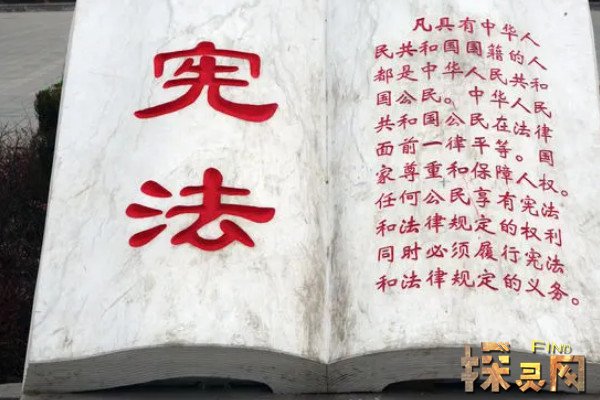 宪
法
凡具有中华人
民共和国国籍的人
都是中华人民共和
国公民。中华人民
共和国公民在法律
面前一律平等。国
家尊重和保障人权。
任何公民享有宪法
和法律规定的权利
同时必须履行宪法
和法律规定的义务。
FIND
探灵网